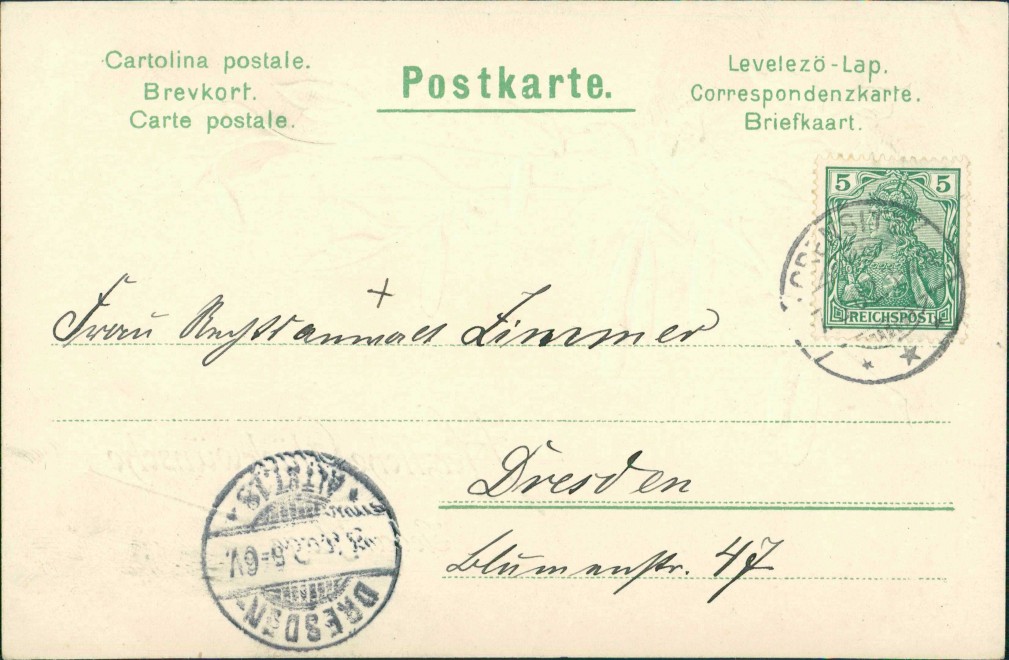 Cartolina postale.
Brevkort.
Carte postale.
Postkarte.
Levelezö-Lap.
Correspondenzkarte.
Briefkaart.
5 5
REICHSPOST
Frau Rechtsanwalt Zimmer
Dresden
Blumenstr. 47
DRESDEN-
* ALTST. 18. *
5-6V.